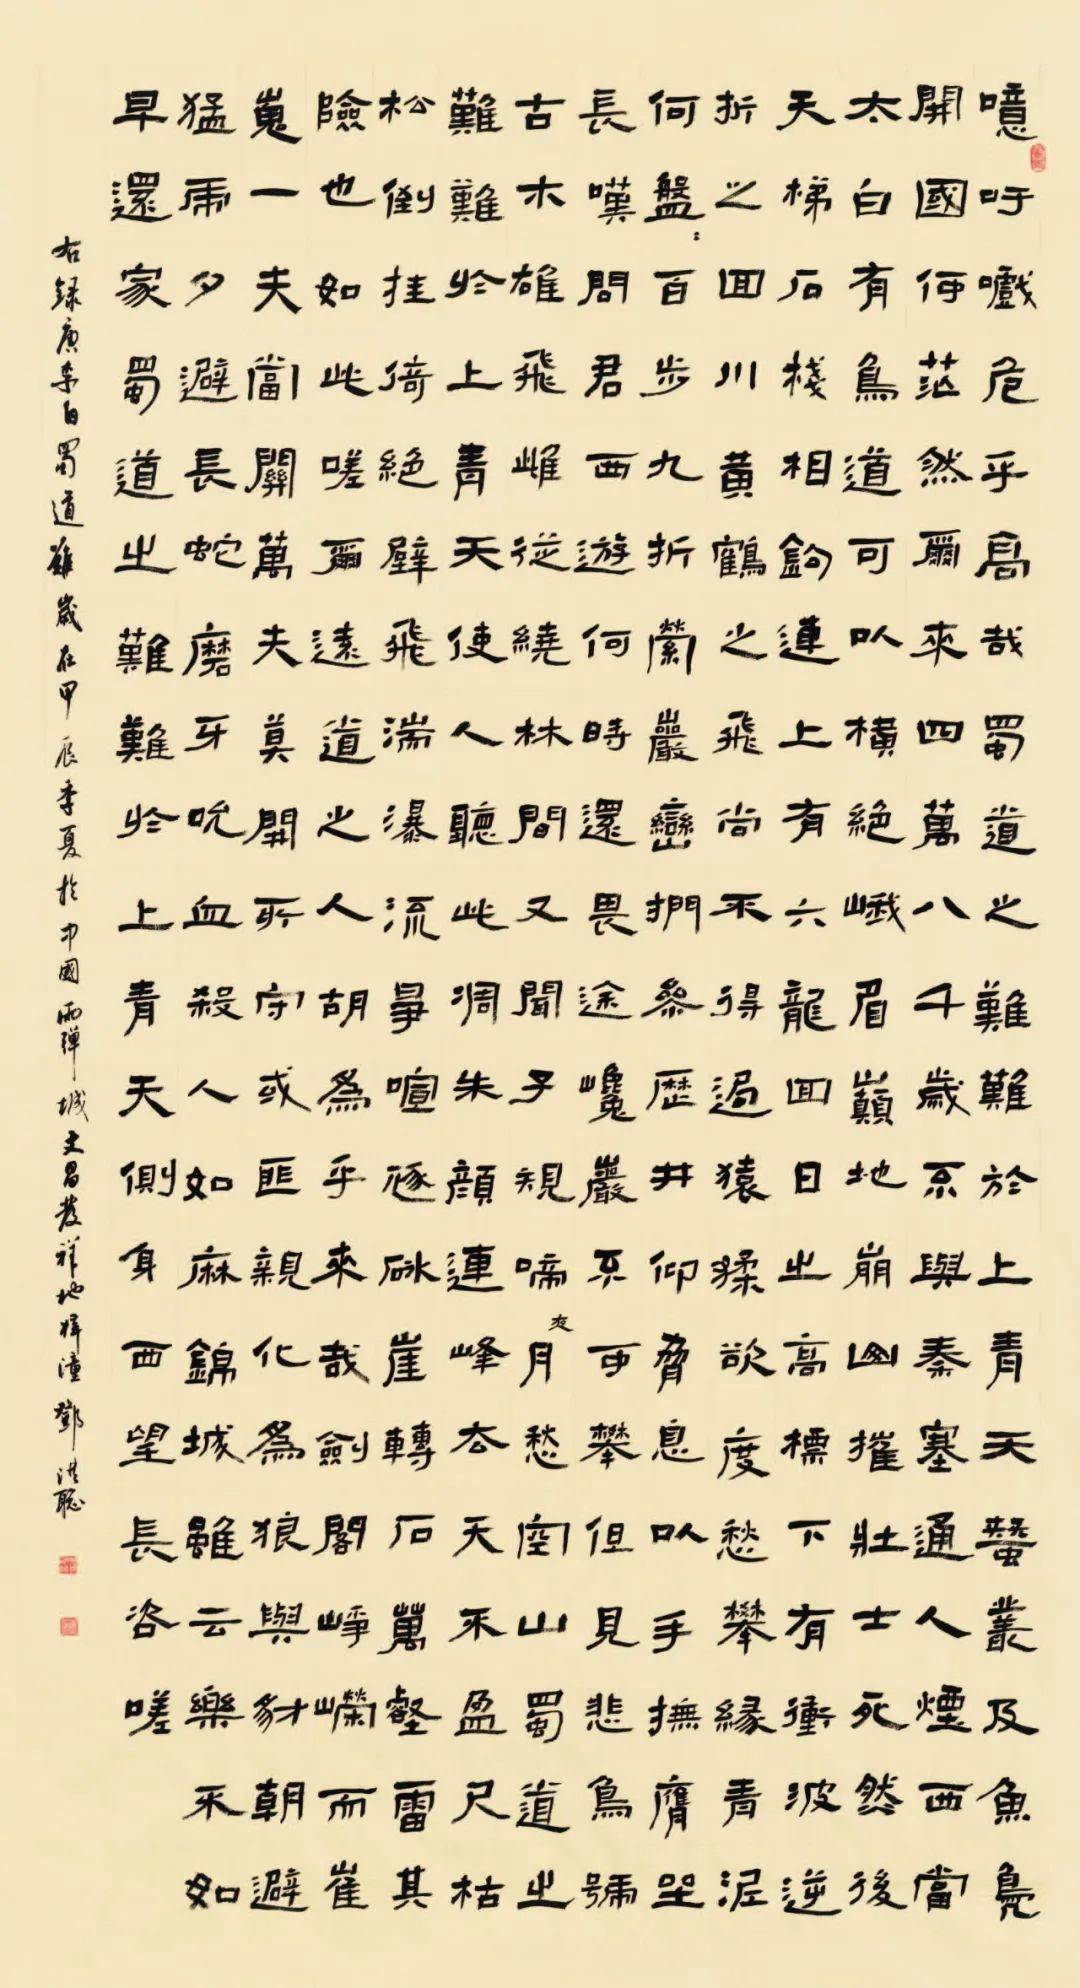 噫吁嚱危乎高哉蜀道之難難於上青天蠶叢及魚鳧
開國何茫然爾來四萬八千歲不與秦塞通人煙西當
太白有鳥道可以橫絕峨眉巔地崩山摧壯士死然後
天梯石棧相鉤連上有六龍回日之高標下有衝波逆
折之回川黃鶴之飛尚不得過猿猱欲度愁攀緣青泥
何盤:百步九折縈巖巒捫參歷井仰脅息以手撫膺坐
長嘆問君西遊何時還畏途巉巖不可攀但見悲鳥號
古木雄飛雌從繞林間又聞子規啼夜月愁空山蜀道之
難難於上青天使人聽此凋朱顏連峰去天不盈尺枯
松倒挂倚絕壁飛湍瀑流爭喧豗砯崖轉石萬壑雷其
險也如此嗟爾遠道之人胡為乎來哉劍閣崢嶸而崔
嵬一夫當關萬夫莫開所守或匪親化為狼與豺朝避
猛虎夕避長蛇磨牙吮血殺人如麻錦城雖云樂不如
早還家蜀道之難難於上青天側身西望長咨嗟
右錄唐李白蜀道難歲在甲辰季夏於中國兩彈城文昌發祥地梓潼鄧洪聰